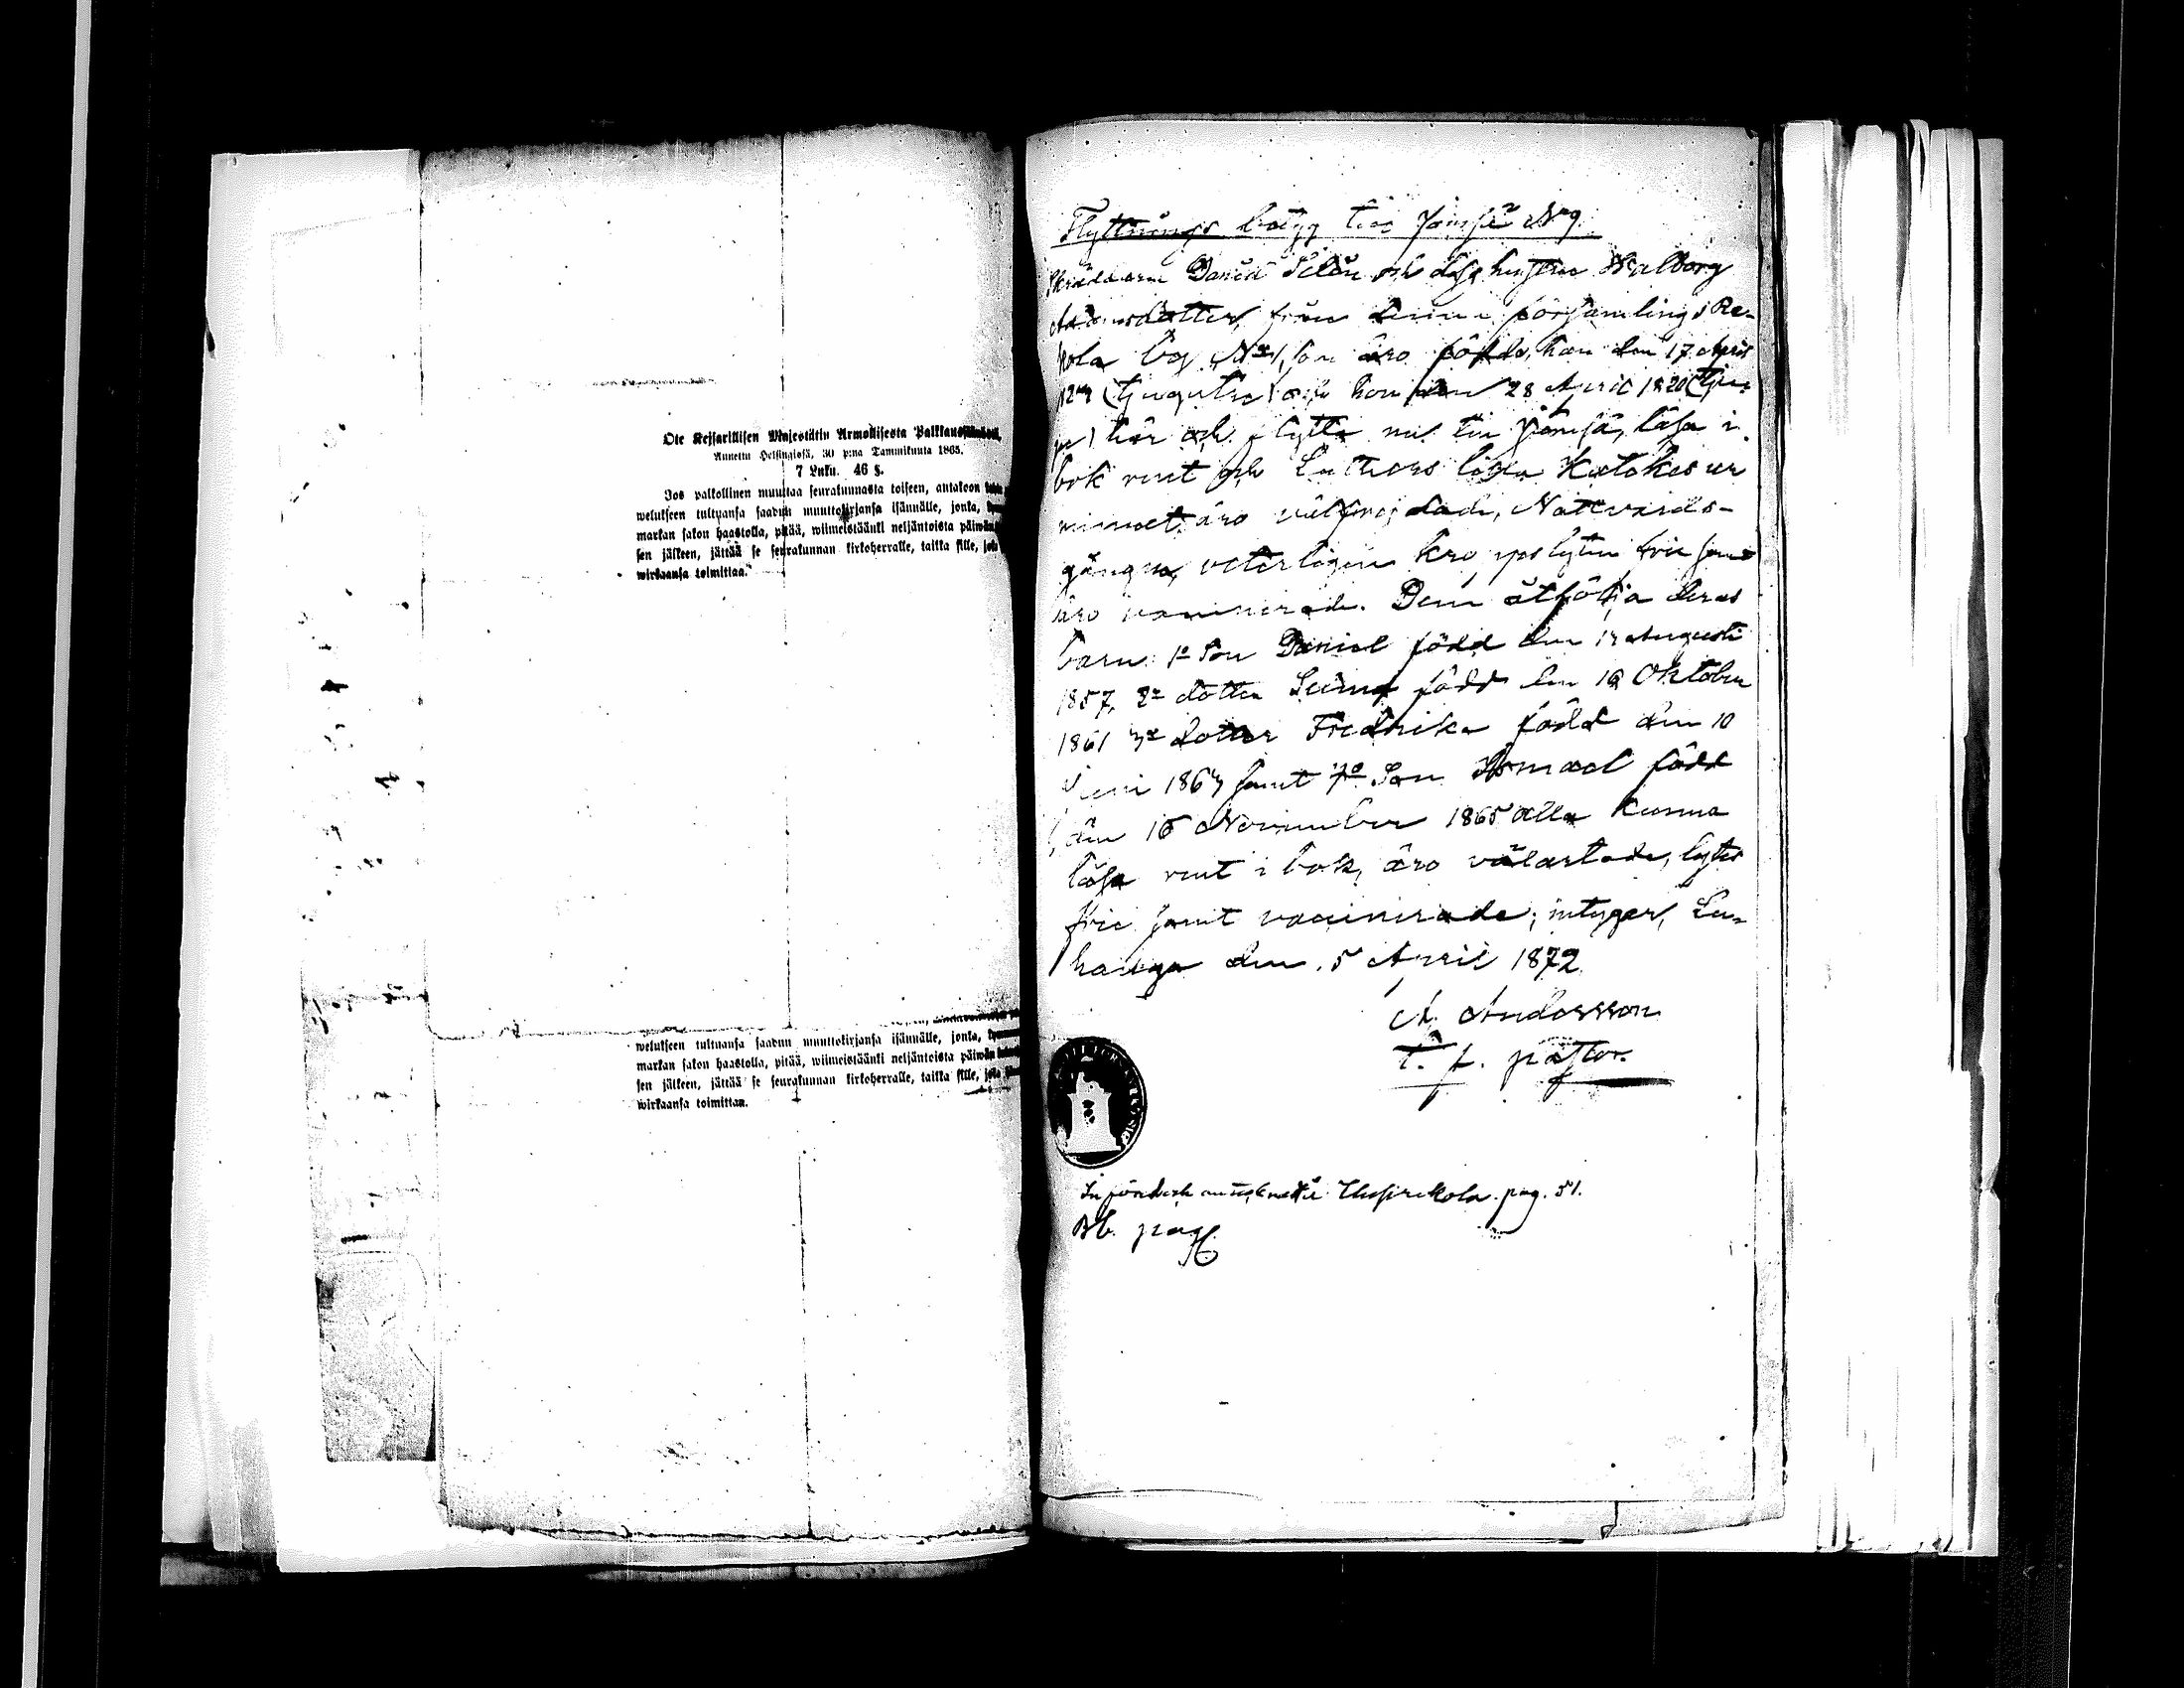 Ote Keisarillisen Majestätin Armollisesta Palkkaussäännöstä,
Annettu Helsingissä, 30 p:nä Tammikuuta 1865.
7 Luku. 46 §.
Jos palkollinen muuttaa seurakunnasta toiseen, antakoon
welukseen tultuansa saadun muuttokirjansa isännälle, jonka,
markan sakon haastolla, pitää, wiimeistäänki neljäntoista päiwän
sen jälkeen, jättää se seurakunnan kirkoherralle, taikka sille, joka
wirkaansa toimittaa.
welukseen tultuansa saadun muuttokirjansa isännälle, jonka,
markan sakon haastolla, pitää, wiimeistäänki neljäntoista päiwän
sen jälkeen, jättää se seurakunnan kirkoherralle, taikka sille, joka
wirkaansa toimittaa.
Flyttnings betyg till Jämsä N:o 9.
Skräddaren David och dess hustru Walborg
Adamsdotter, från denna församlings Re-
kola by N:o 1, som äro födde, han den 17 April
och hon den 28 April 1820
här och flytta nu till Jämsä, läsa i
bok rent och Luthers lilla Katekes ur
minnet, äro välfrejdade, Nattvards-
gångna, veterligen kropslyten frie samt
äro vaccinerade. Dem åtfölja deras
barn: 1:o Son Daniel född den Augusti
1857, 2:o dotter född den 16 Oktober
1861 3:o dotter Fredrika född den 10
Juni 186 samt 4:o Son Ismael född
den 16 November 1865 alla kunna
läsa rent i bok, äro välartade, lytes
frie samt vaccinerade; intygar, Lu-
hanga den 5 April 1872.
A. Andersson
t. f. pastor.
Införd och antecknad i pag. 51.
Bb. pag